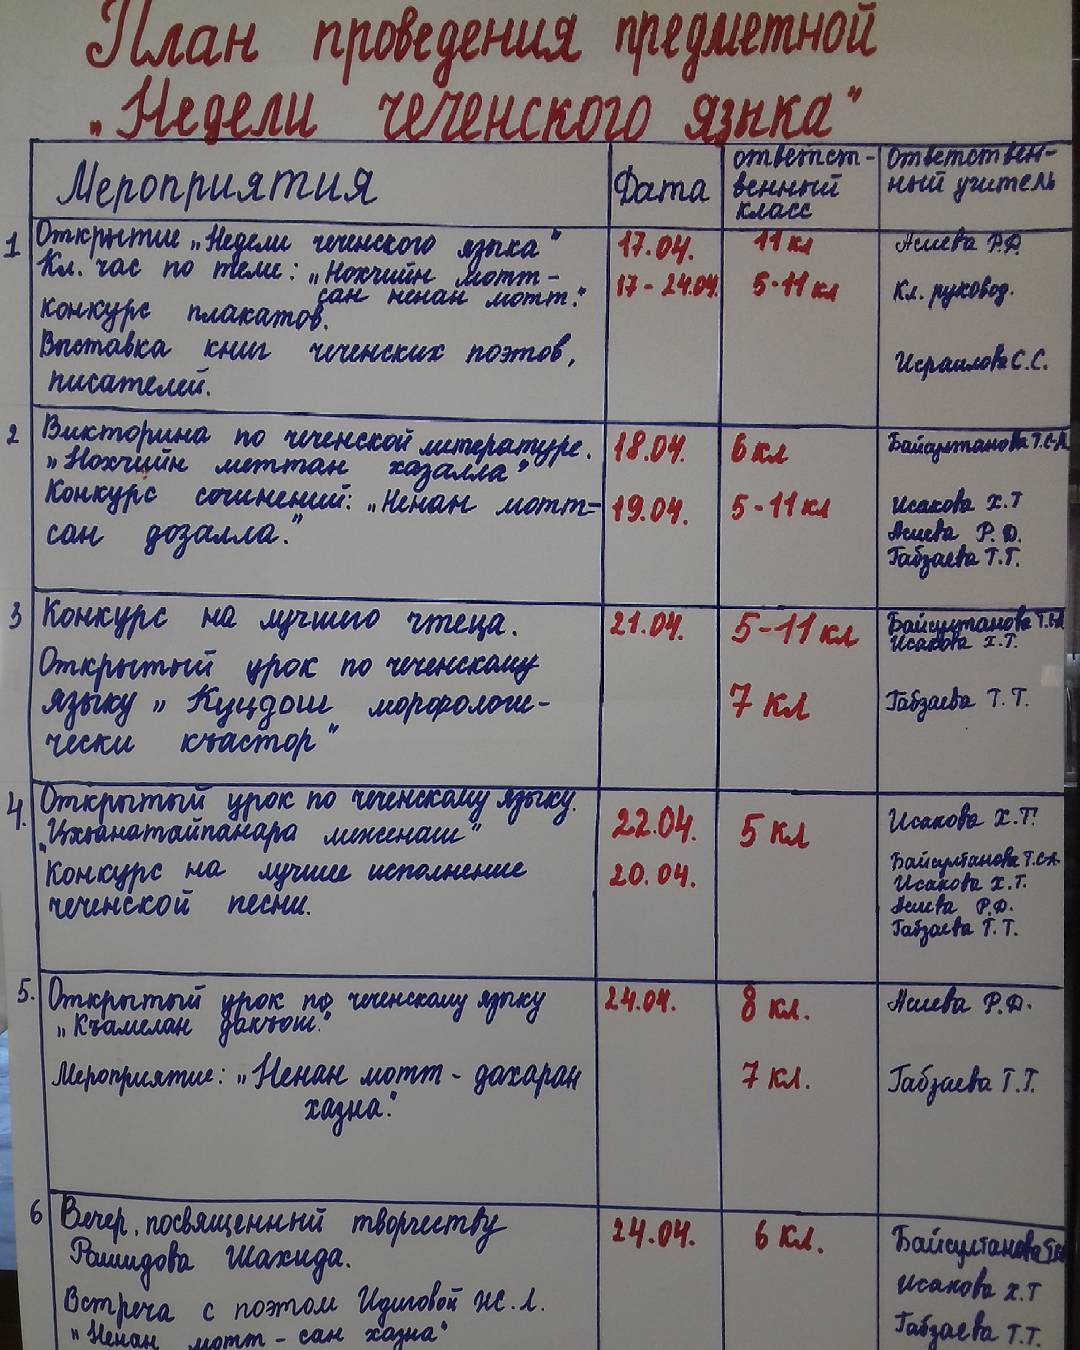 План проведения предметной
„Недели чеченского языка"
Мероприятия
Дата
ответст-
венный
класс
Ответствен-
ный учитель
1 Открытие „Недели чеченского языка" 17.04. 11 кл Асиева Р.Д.
Кл. час по теме: „Нохчийн мотт- 17-24.04. 5-11 кл Кл. руковод.
сан ненан мотт."
конкурс плакатов.
Выставка книг чеченских поэтов, Исраилова С.С.
писателей.
2 Викторина по чеченской литературе. 18.04. 6 кл Байсултанова Т.С-А
„Нохчийн меттан хазалла"
Конкурс сочинений: „Ненан мотт- 19.04. 5-11 кл Исакова Х.Т
сан дозалла." Асиева Р.Д.
Габзаева Т.Т.
3 Конкурс на лучшего чтеца. 21.04. 5-11 кл Байсултанова Т.С-А
Исакова Х.Т.
Открытый урок по чеченскому
языку „Куцдош морфологи- 7 кл Габзаева Т.Т.
чески къастор"
4. Открытый урок по чеченскому языку. 22.04. 5 кл Исакова Х.Т.
„Цхьанатайпанара меженаш"
Конкурс на лучшее исполнение 20.04. Байсултанова Т.С-А.
чеченской песни. Исакова Х.Т.
Асиева Р.Д.
Габзаева Т.Т.
5. Открытый урок по чеченскому языку 24.04. 8 кл. Асиева Р.Д.
„Къамелан дакъош."
Мероприятие: „Ненан мотт - дахаран 7 кл. Габзаева Т.Т.
хазна."
6 Вечер, посвященный творчеству 24.04. 6 кл. Байсултанова
Рашидова Шахида.
Исакова Х.Т
Встреча с поэтом Идиговой Ж.Л.
„Ненан мотт - сан хазна" Габзаева Т.Т.